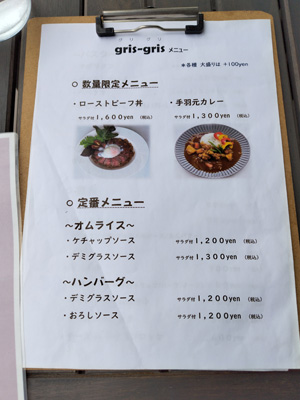 グリ グリ
gris-gris メニュー
*各種 大盛りは +100yen
○ 数量限定メニュー
・ローストビーフ丼 ・手羽元カレー
サラダ付 1,600yen (税込) サラダ付 1,300yen (税込)
○ 定番メニュー
〜オムライス〜
・ケチャップソース サラダ付 1,200yen (税込)
・デミグラスソース サラダ付 1,300yen (税込)
〜ハンバーグ〜
・デミグラスソース サラダ付 1,200yen (税込)
・おろしソース サラダ付 1,200yen (税込)